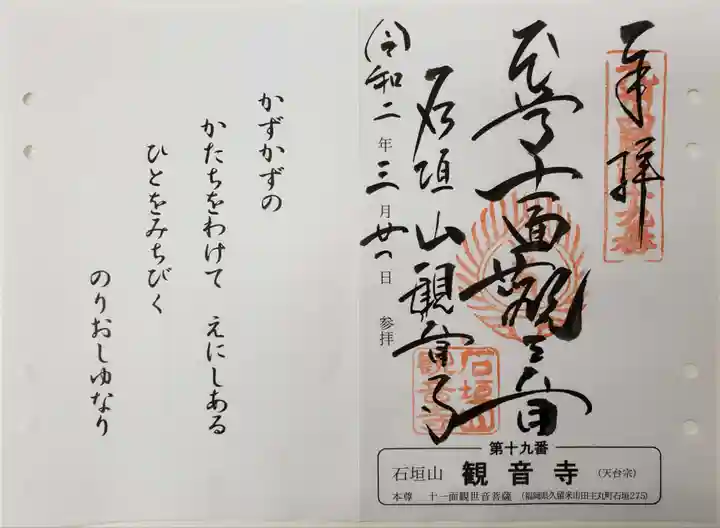 奉拝
十一面観世音
石垣山観音寺
令和二年三月廿一日 参拝
石垣山
観音寺
第十九番
石垣山 観音寺 (天台宗)
本尊 十一面観世音菩薩 (福岡県久留米市田主丸町石垣275)
かずかずの
かたちをわけて えにしある
ひとをみちびく
のりおしゆなり